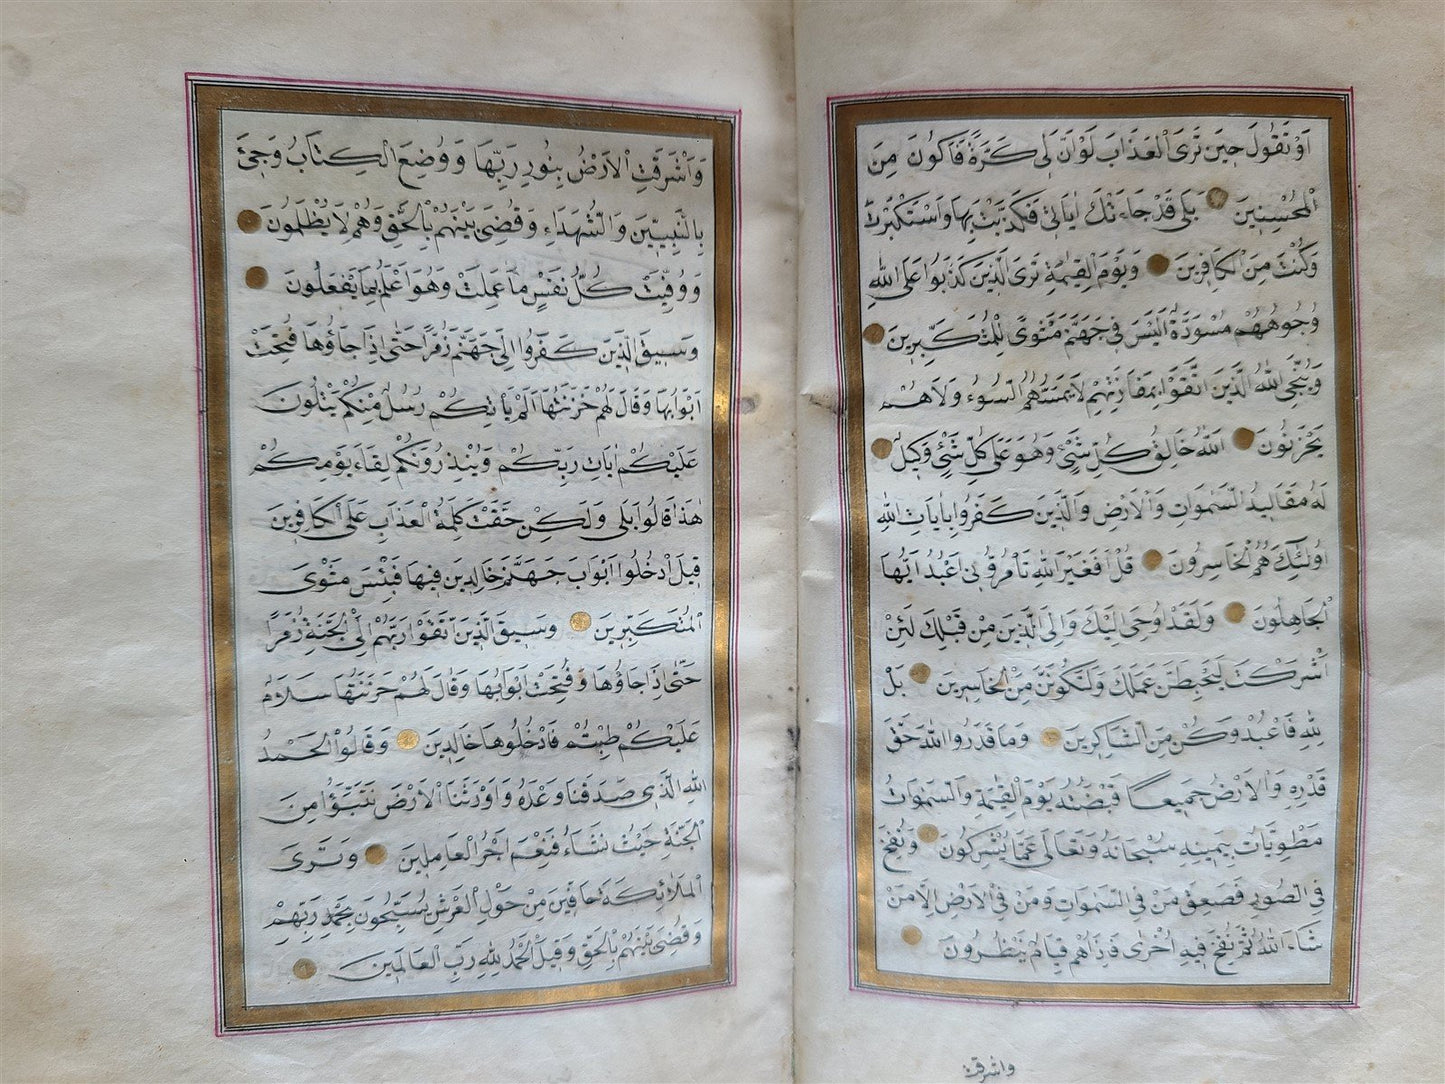 اَوْ تَقُولَ حِينَ تَرَى الْعَذَابَ لَوْ اَنَّ لِى كَرَّةً فَاَكُونَ مِنَ
الْمُحْسِنِينَ بَلٰى قَدْ جَاءَتْكَ اٰيَاتِى فَكَذَّبْتَ بِهَا وَاسْتَكْبَرْتَ
وَكُنْتَ مِنَ الْكَافِرِينَ وَيَوْمَ الْقِيٰمَةِ تَرَى الَّذِينَ كَذَبُوا عَلَى اللّٰهِ
وُجُوهُهُمْ مُسْوَدَّةٌ اَلَيْسَ فِى جَهَنَّمَ مَثْوًى لِلْمُتَكَبِّرِينَ
وَيُنَجِّى اللّٰهُ الَّذِينَ اتَّقَوْا بِمَفَازَتِهِمْ لَا يَمَسُّهُمُ السُّوءُ وَلَا هُمْ
يَحْزَنُونَ اَللّٰهُ خَالِقُ كُلِّ شَىْءٍ وَهُوَ عَلٰى كُلِّ شَىْءٍ وَكِيلٌ
لَهُ مَقَالِيدُ السَّمٰوَاتِ وَالْاَرْضِ وَالَّذِينَ كَفَرُوا بِاٰيَاتِ اللّٰهِ
اُولٰئِكَ هُمُ الْخَاسِرُونَ قُلْ اَفَغَيْرَ اللّٰهِ تَاْمُرُونِّى اَعْبُدُ اَيُّهَا
الْجَاهِلُونَ وَلَقَدْ اُوحِىَ اِلَيْكَ وَاِلَى الَّذِينَ مِنْ قَبْلِكَ لَئِنْ
اَشْرَكْتَ لَيَحْبَطَنَّ عَمَلُكَ وَلَتَكُونَنَّ مِنَ الْخَاسِرِينَ بَلِ
اللّٰهَ فَاعْبُدْ وَكُنْ مِنَ الشَّاكِرِينَ وَمَا قَدَرُوا اللّٰهَ حَقَّ
قَدْرِهِ وَالْاَرْضُ جَمِيعًا قَبْضَتُهُ يَوْمَ الْقِيٰمَةِ وَالسَّمٰوَاتُ
مَطْوِيَّاتٌ بِيَمِينِهِ سُبْحَانَهُ وَتَعَالٰى عَمَّا يُشْرِكُونَ وَنُفِخَ
فِى الصُّورِ فَصَعِقَ مَنْ فِى السَّمٰوَاتِ وَمَنْ فِى الْاَرْضِ اِلَّا مَنْ
شَاءَ اللّٰهُ ثُمَّ نُفِخَ فِيهِ اُخْرٰى فَاِذَا هُمْ قِيَامٌ يَنْظُرُونَ
واشرقت
وَاَشْرَقَتِ الْاَرْضُ بِنُورِ رَبِّهَا وَوُضِعَ الْكِتَابُ وَجِىءَ
بِالنَّبِيّٖنَ وَالشُّهَدَاءِ وَقُضِىَ بَيْنَهُمْ بِالْحَقِّ وَهُمْ لَا يُظْلَمُونَ
وَوُفِّيَتْ كُلُّ نَفْسٍ مَا عَمِلَتْ وَهُوَ اَعْلَمُ بِمَا يَفْعَلُونَ
وَسِيقَ الَّذِينَ كَفَرُوا اِلٰى جَهَنَّمَ زُمَرًا حَتّٰى اِذَا جَاؤُهَا فُتِحَتْ
اَبْوَابُهَا وَقَالَ لَهُمْ خَزَنَتُهَا اَلَمْ يَاْتِكُمْ رُسُلٌ مِنْكُمْ يَتْلُونَ
عَلَيْكُمْ اٰيَاتِ رَبِّكُمْ وَيُنْذِرُونَكُمْ لِقَاءَ يَوْمِكُمْ
هٰذَا قَالُوا بَلٰى وَلٰكِنْ حَقَّتْ كَلِمَةُ الْعَذَابِ عَلَى الْكَافِرِينَ
قِيلَ ادْخُلُوا اَبْوَابَ جَهَنَّمَ خَالِدِينَ فِيهَا فَبِئْسَ مَثْوَى
الْمُتَكَبِّرِينَ وَسِيقَ الَّذِينَ اتَّقَوْا رَبَّهُمْ اِلَى الْجَنَّةِ زُمَرًا
حَتّٰى اِذَا جَاؤُهَا وَفُتِحَتْ اَبْوَابُهَا وَقَالَ لَهُمْ خَزَنَتُهَا سَلَامٌ
عَلَيْكُمْ طِبْتُمْ فَادْخُلُوهَا خَالِدِينَ وَقَالُوا الْحَمْدُ
لِلّٰهِ الَّذِى صَدَقَنَا وَعْدَهُ وَاَوْرَثَنَا الْاَرْضَ نَتَبَوَّؤُا مِنَ
الْجَنَّةِ حَيْثُ نَشَاءُ فَنِعْمَ اَجْرُ الْعَامِلِينَ وَتَرَى
الْمَلٰئِكَةَ حَافِّينَ مِنْ حَوْلِ الْعَرْشِ يُسَبِّحُونَ بِحَمْدِ رَبِّهِمْ
وَقُضِىَ بَيْنَهُمْ بِالْحَقِّ وَقِيلَ الْحَمْدُ لِلّٰهِ رَبِّ الْعَالَمِينَ